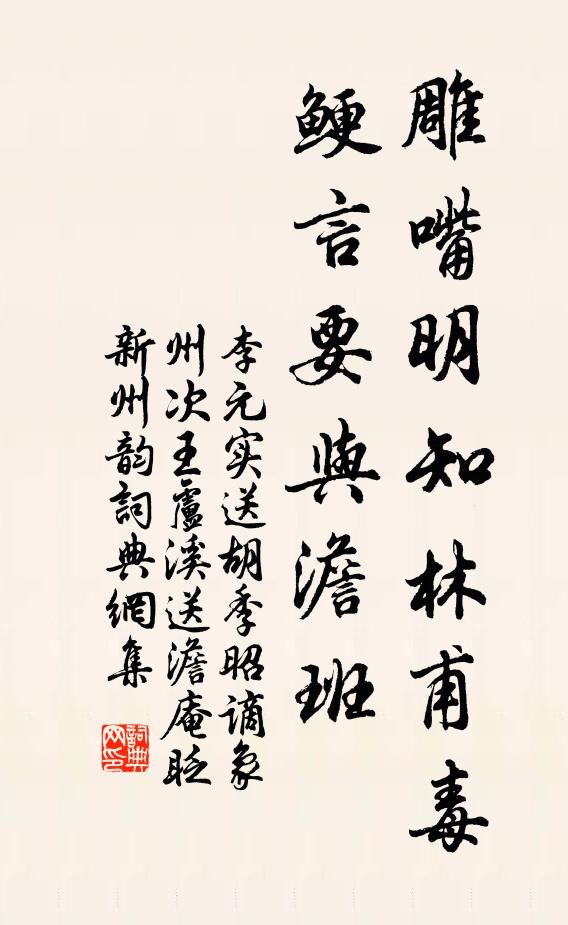 雕嘴明知林甫毒
鲠言要與澹班
李元实送胡季昭谪象
州次王盧溪送澹庵貶
新州韵詞典網集
詞典网印